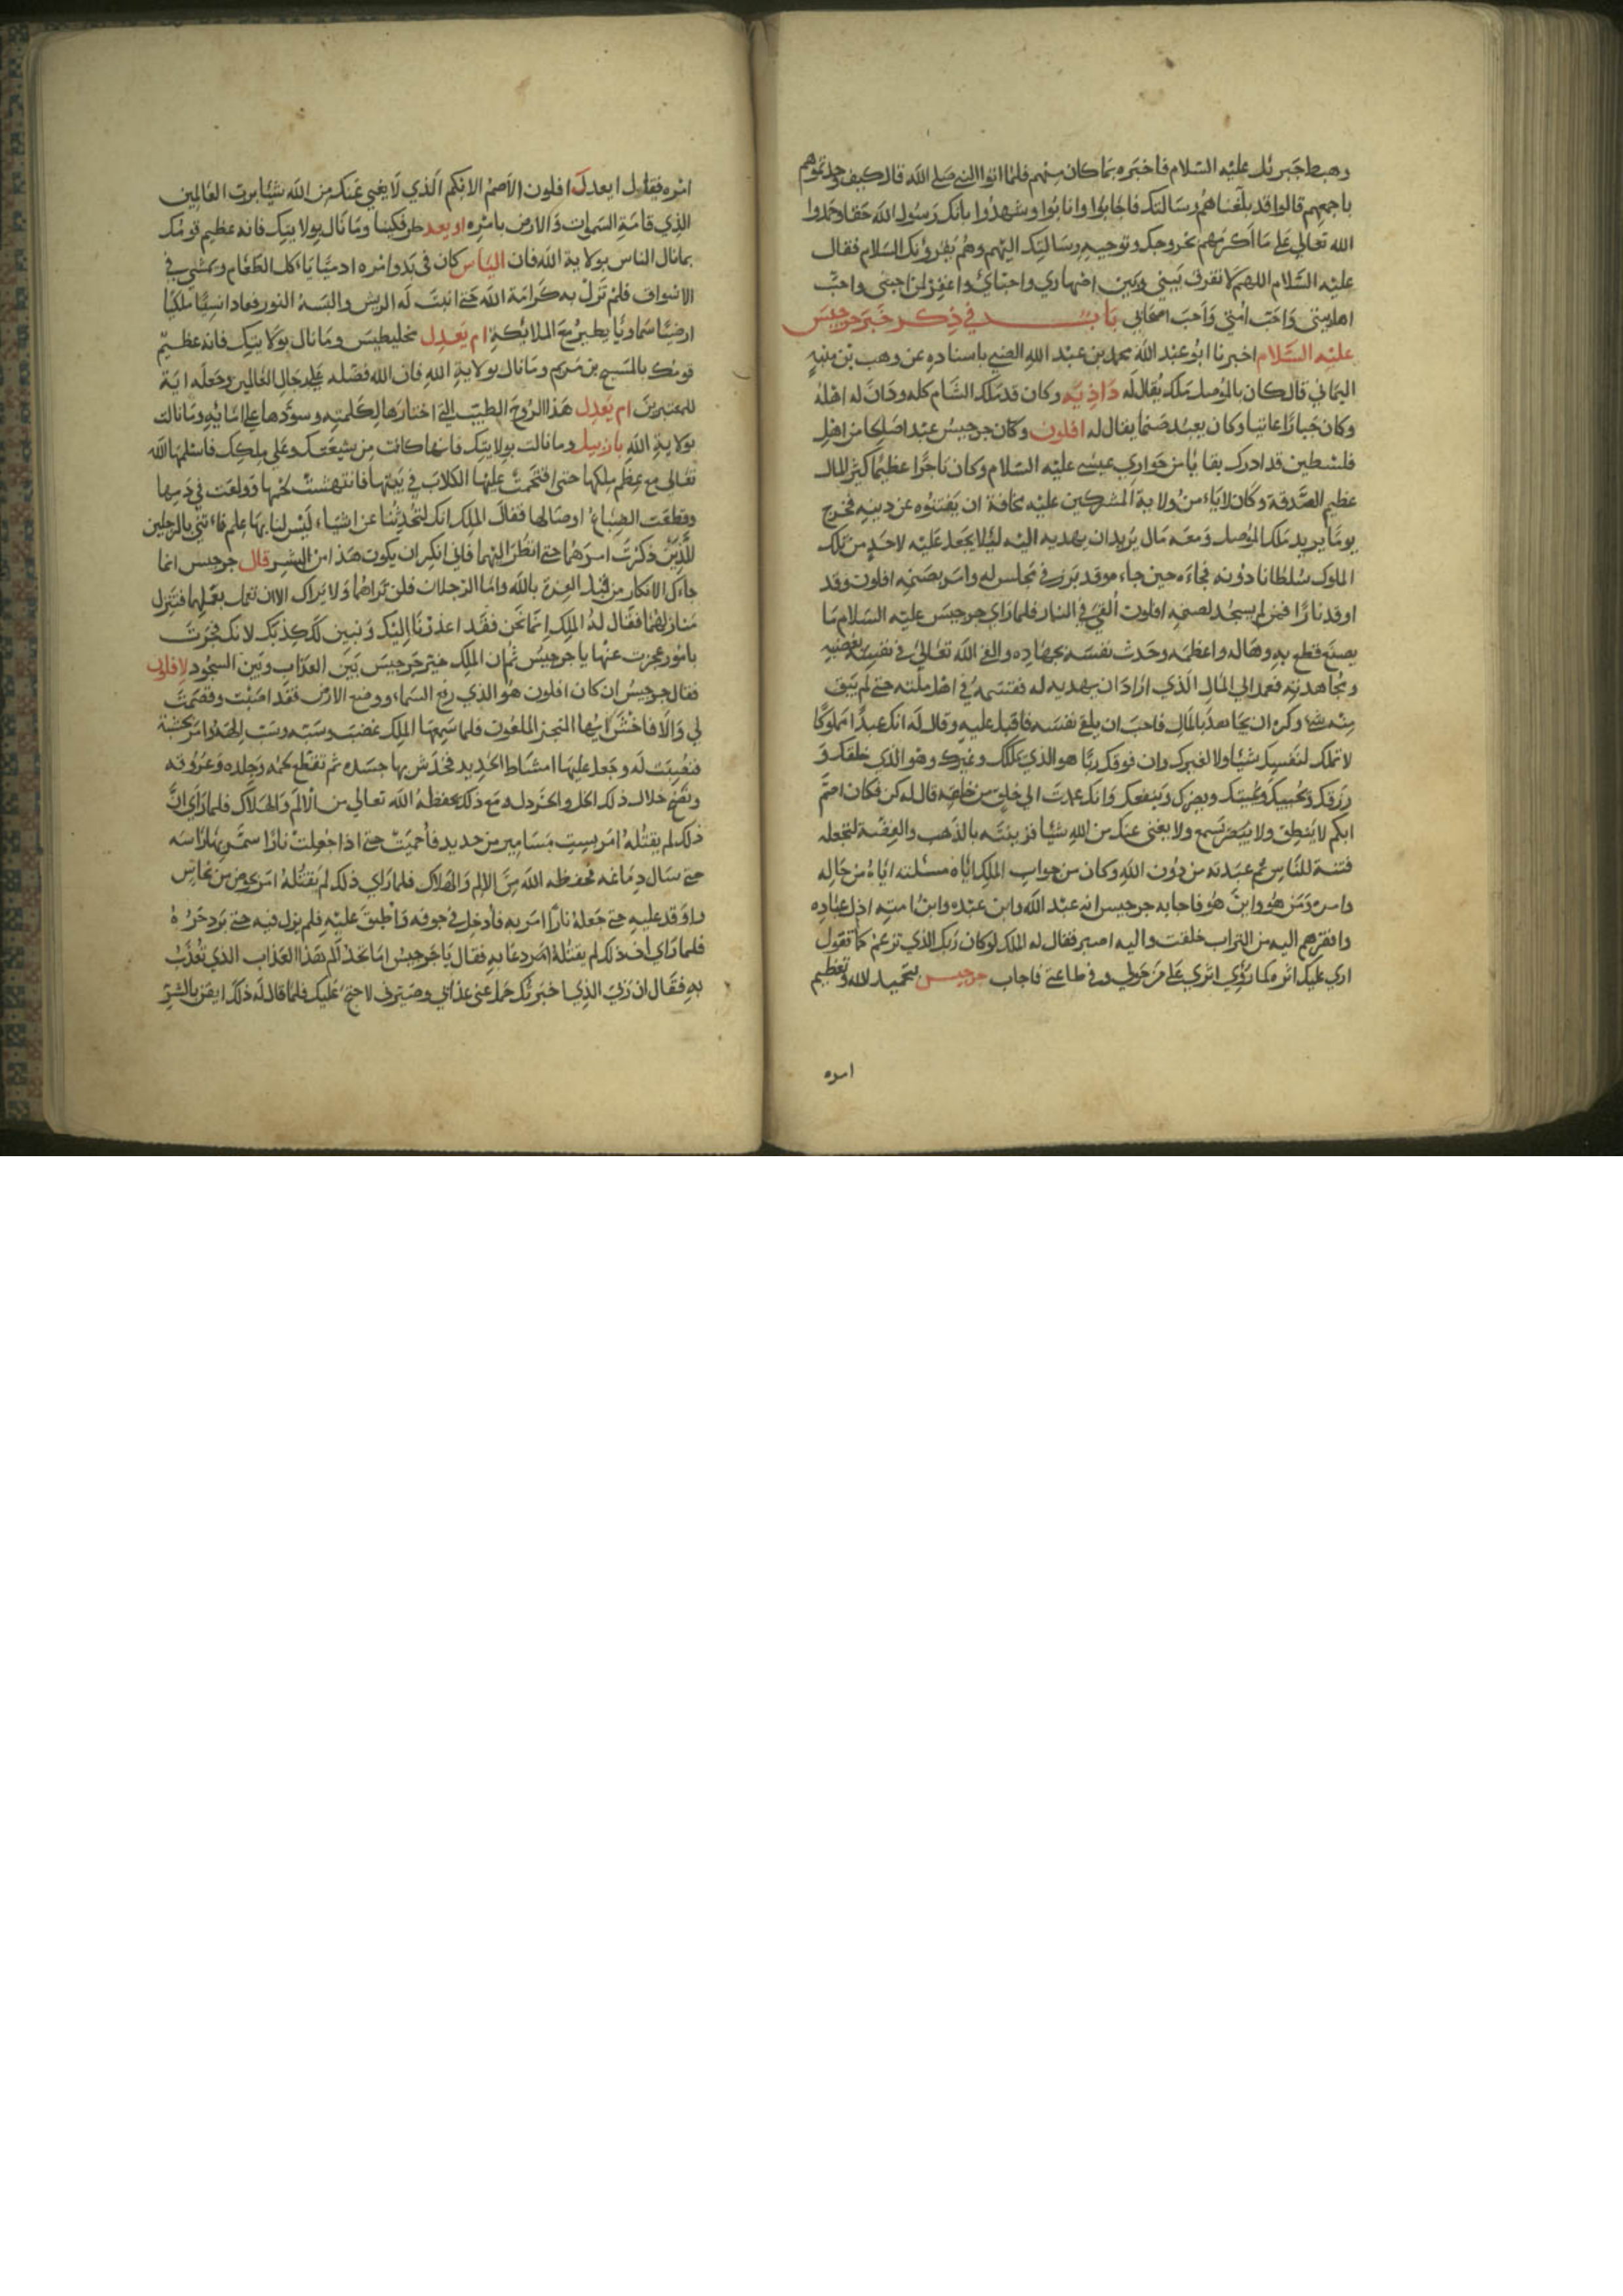 وهبط جبرئل عليه السلام فاخبره بما كان منهم فلما اتوا النبي صلي الله قال كيف وجدتموهم
باجمعهم قالوا قد بلغناهم رسالتك فاجابوا وانابوا وشهدوا بانك رسول الله حقا وحمدوا
الله تعالي علي ما اكرمهم بخروجك وتوجيه رسالتك اليهم وهم يقرؤنك السلام فقال
عليه السلام اللهم لا تفرق بيني وبين اصهاري واحبائي واغفر لمن احبني واحب
اهل بيتي واحب امتي واحب اصحابي باب في ذكر خبر جرجيس
عليه السلام اخبرنا ابو عبد الله محمد بن عبد الله الضبي باسناده عن وهب بن منبه
اليماني قال كان بالموصل ملك يقال له داذيه وكان قد ملك الشام كله ودان له اهله
وكان جبارا عاتيا وكان يعبد صنما يقال له افلون وكان جرجيس عبدا صالحا من اهل
فلسطين قد ادرك بقايا من حواري عيسى عليه السلام وكان تاجرا عظيما كثير المال
عظيم الصدقة وكان لا يامن ولاية المشركين عليه مخافة ان يفتنوه عن دينه فخرج
يوما يريد ملك الموصل ومعه مال يريد ان يهديه اليه ليلا يجعل عليه لاحد من تلك
الملوك سلطانا دونه فجاءه حين جاء وقد برز في مجلس له وامر بصنمه افلون وقد
اوقد نارا فمن لم يسجد لصنمه افلون ألقي في النار فلما راي جرجيس عليه السلام ما
يصنع قطع به وهاله واعظمه وحدث نفسه بجهاده والقي الله تعالي في نفسه بغضه
ومجاهدته فعمد الي المال الذي اراد ان يهديه له فقسمه في اهل ملته حتي لم يبق
منه شيء وكره ان يجاهده بالمال فاحب ان يلي نفسه فاقبل عليه وقال له انك عبدا مملوكا
لا تملك لنفسك شيئا ولا لغيرك وان فوقك ربا هو الذي يملكك وغيرك وهو الذي خلقك و
رزقك ويحييك ويميتك ويضرك وينفعك وانك عمدت الي خلق من خلقه قال له كن فكان اصم
ابكم لا ينطق ولا يبصر يسمع ولا يغني عنك من الله شيئا فزينته بالذهب والفضة لتجعله
فتنة للناس ثم عبدته من دون الله وكان من جواب الملك اياه مسئلته اياه من حاله
وامره ومن هو وابن هو فاجابه جرجيس انه عبد الله وابن عبده وابن امته اذل عباده
وافقرهم اليه من التراب خلقت واليه اصير فقال له الملك لو كان ربك الذي تزعم كما تقول
اري عليك اثره كما رؤي اثري علي من حولي وفي طاعتي فاجاب جرجيس بتحميد الله وتعظيم
امره
امره فقال ايعدل افلون الاصم الابكم الذي لا يغني عنك من الله شيئا برب العالمين
الذي قامة السموات والارض بامره او يعدل طرفكينا وما نال بولايتك فانه عظيم قومك
بما نال الناس بولاية الله فان الياس كان في بدو امره ادميا ياكل الطعام ويمشي في
الاسواق فلم تزل به كرامة الله حتي انبت له الريش والبسه النور فعاد انسيا ملكيا
ارضيا سماويا يطير مع الملائكة ام يعدل مخليطيس وما نال بولايتك فانه عظيم
قومك بالمسيح بن مريم وما نال بولاية الله فان الله فضله علي رجال العالمين وجعله اية
للمعتبرين ام يعدل هذا الروح الطيب التي اختارها لكلمته وسودها علي امائه وما نالت
بولاية الله بازبيل وما نالت بولايتك فانها كانت من شيعتك وعلي ملكك فاسلمها الله
تعالي مع عظم ملكها حتى اقتحمت عليها الكلاب في بيتها فانتهشت لحمها وولغت في دمها
وقطعت الضباع اوصالها فقال الملك انك لتحدثنا عن اشياء ليس لنا بها علم فاءتني بالرجلين
للذين ذكرت امرهما حتي انظر اليهما فاني انكر ان يكون هذا من البشر قال جرجيس انما
جاءك الانكار من قبل الغرة بالله واما الرجلان فلن تراهما ولا يراك الا ان تعمل بعملهما فتنزل
منازلهما فقال له الملك انما نحن فقد اعذرنا اليك وتبين لك كذبك لانك فخرت
بامور عجزت عنها يا جرجيس ثم ان الملك خير جرجيس بين العذاب وبين السجود لافلون
فقال جرجيس ان كان افلون هو الذي رفع السماء ووضع الارض فقد اصبت ونصحت
لي والا فاخسا ايها النجس الملعون فلما سمعها الملك غضب وسبه وسب الهه وامر بخشبة
فنصبت له وجعل عليها امشاط الحديد فخدش بها جسده ثم تقطع لحمه وجلده وعروقه
ونضح خلال ذلك الخل والخردل ومع ذلك يحفظه الله تعالي من الالم والهلاك فلما راي ان
ذلك لم يقتله امر بست مسامير من حديد فأحميت حتي اذا جعلت نارا سمر بها راسه
حتي سال دماغه فحفظه الله من الالم والهلاك فلما راي ذلك لم يقتله امر بحوض من نحاس
واوقد عليه حتي جعله نارا امر به فأدخل في جوفه واطبق عليه فلم يزل فيه حتي برد حره
فلما راي ان ذلك لم يقتله امر دعا به فقال يا جرجيس اما تجد الم هذا العذاب الذي تعذب
به فقال ان ربي الذي اخبرتك حمل عني عذابي وصبرني لاحتج عليك فلما قال له ذلك ايقن بالشر